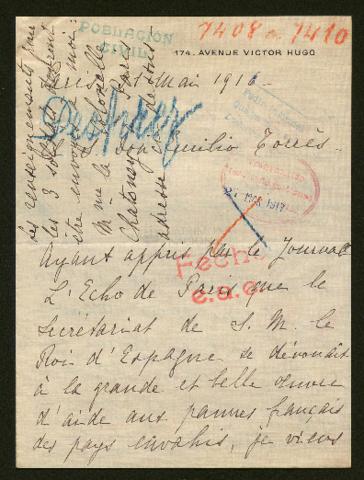 POBLACION
CIVIL
7408 a 7410
174, AVENUE VICTOR HUGO
Les renseignements pour
les 3 soldats
être envoyés à moi
M me la
adresse
Mai 1916
Desprez
Don Emilio Torrès
Ayant appris par le Journal
L'Echo de Paris que le
Secrétariat de S. M. le
Roi d'Espagne se dévouait
à la grande et belle œuvre
d'aide aux pauvres français
des pays envahis, je viens
Fecha